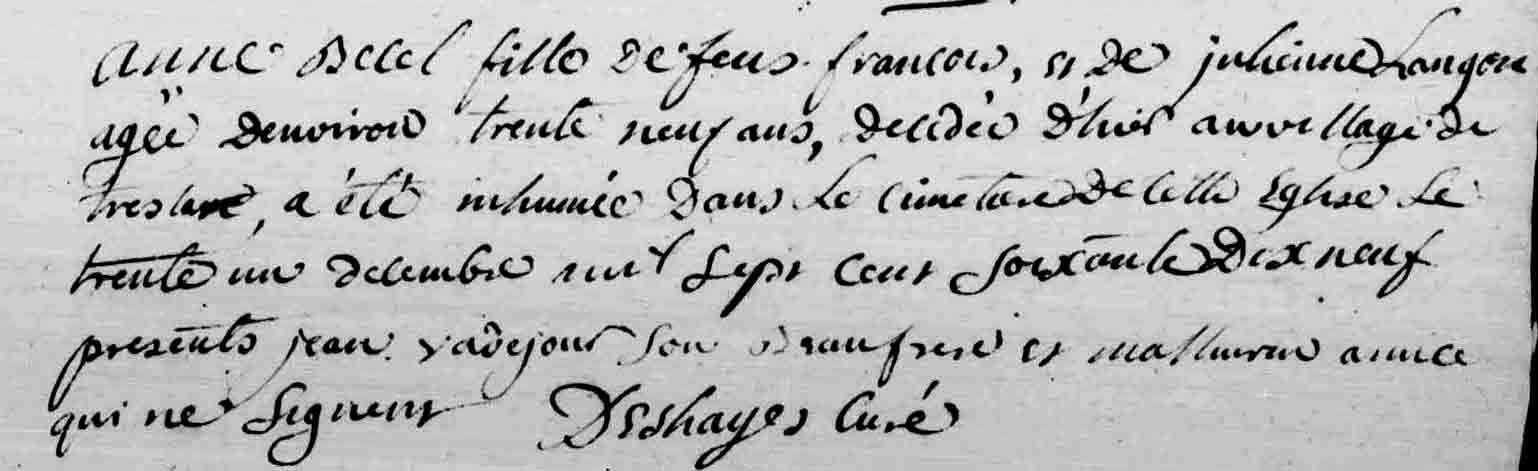 anne Becel fille de feus francois, et de julienne Langou
agée denviron trente neuf ans, decedée d'hier au village de
treslan, a été inhumée dans Le cimetiere de cette Eglise Le
trente un decembre mil Sept Cent Soixante dix neuf
presents jean vadejour Son Beaufrere et mathurin annee
qui ne Signent Deshayes Curé